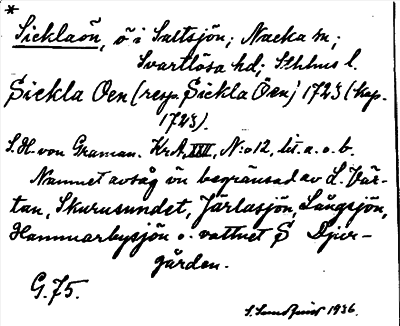 *
Sicklaön, ö i Saltsjön; Nacka sn;
Svartlösa hd; Sthlms l.
Sickla Oen (resp. Sickla Öen) 1723 (kop.
1723).
S. H. von Graman. KrA, XXI, N:o 12, lit. a. o. b.
Namnet avsåg ön begränsad av L. Vär-
tan, Skurusundet, Järlasjön, Långsjön,
Hammarbysjön o. vattnet S Djur-
gården.
G. 75.
1936.